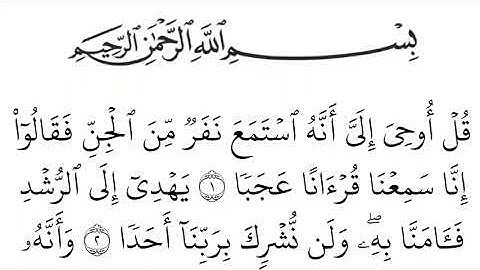 بِسْمِ ٱللَّهِ ٱلرَّحْمَٰنِ ٱلرَّحِيمِ
قُلْ أُوحِىَ إِلَىَّ أَنَّهُ ٱسْتَمَعَ نَفَرٌ مِّنَ ٱلْجِنِّ فَقَالُوٓا۟
إِنَّا سَمِعْنَا قُرْءَانًا عَجَبًا ١ يَهْدِىٓ إِلَى ٱلرُّشْدِ
فَـَٔامَنَّا بِهِۦ ۖ وَلَن نُّشْرِكَ بِرَبِّنَآ أَحَدًا ٢ وَأَنَّهُۥ